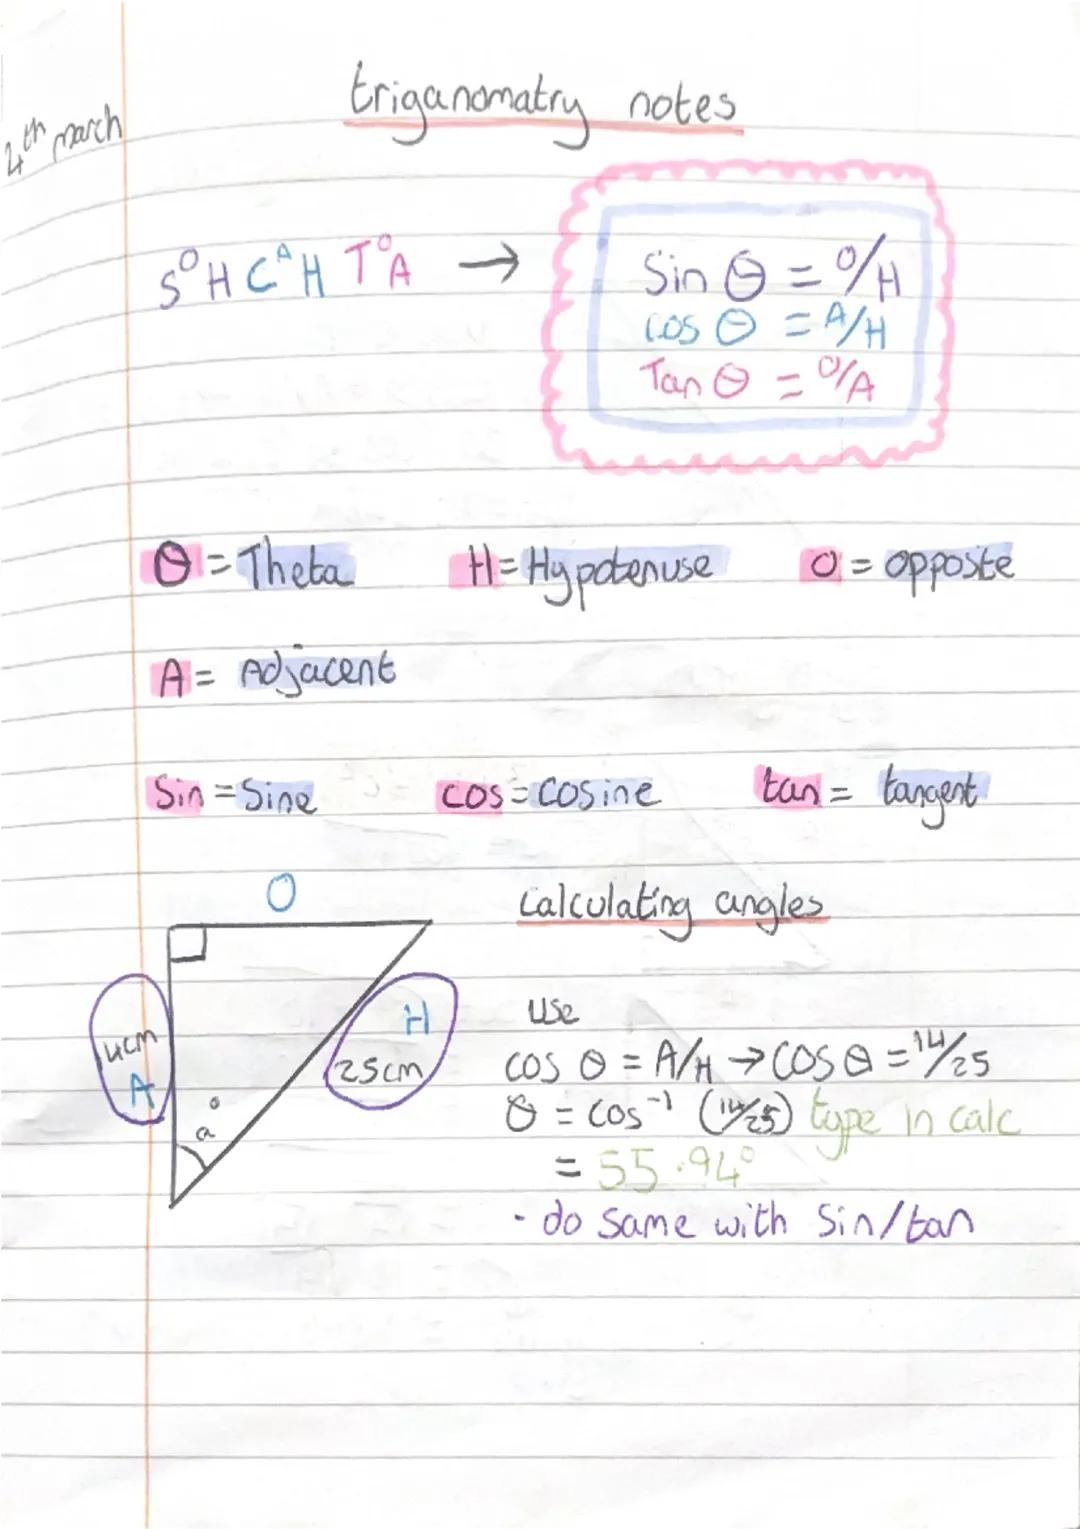 4th march
triganomatry notes
SOH CAH TOA →
Sin Θ = O/H
cos Θ = A/H
Tan Θ = O/A
Θ = Theta H = Hypotenuse O = opposite
A = Adjacent
Sin = Sine cos = cosine tan = tangent
O
Calculating angles
14cm
A
H
25cm
a°
Use
cos Θ = A/H → cos Θ = 14/25
Θ = cos⁻¹ (14/25) type in calc
= 55.94°
- do same with Sin/tan